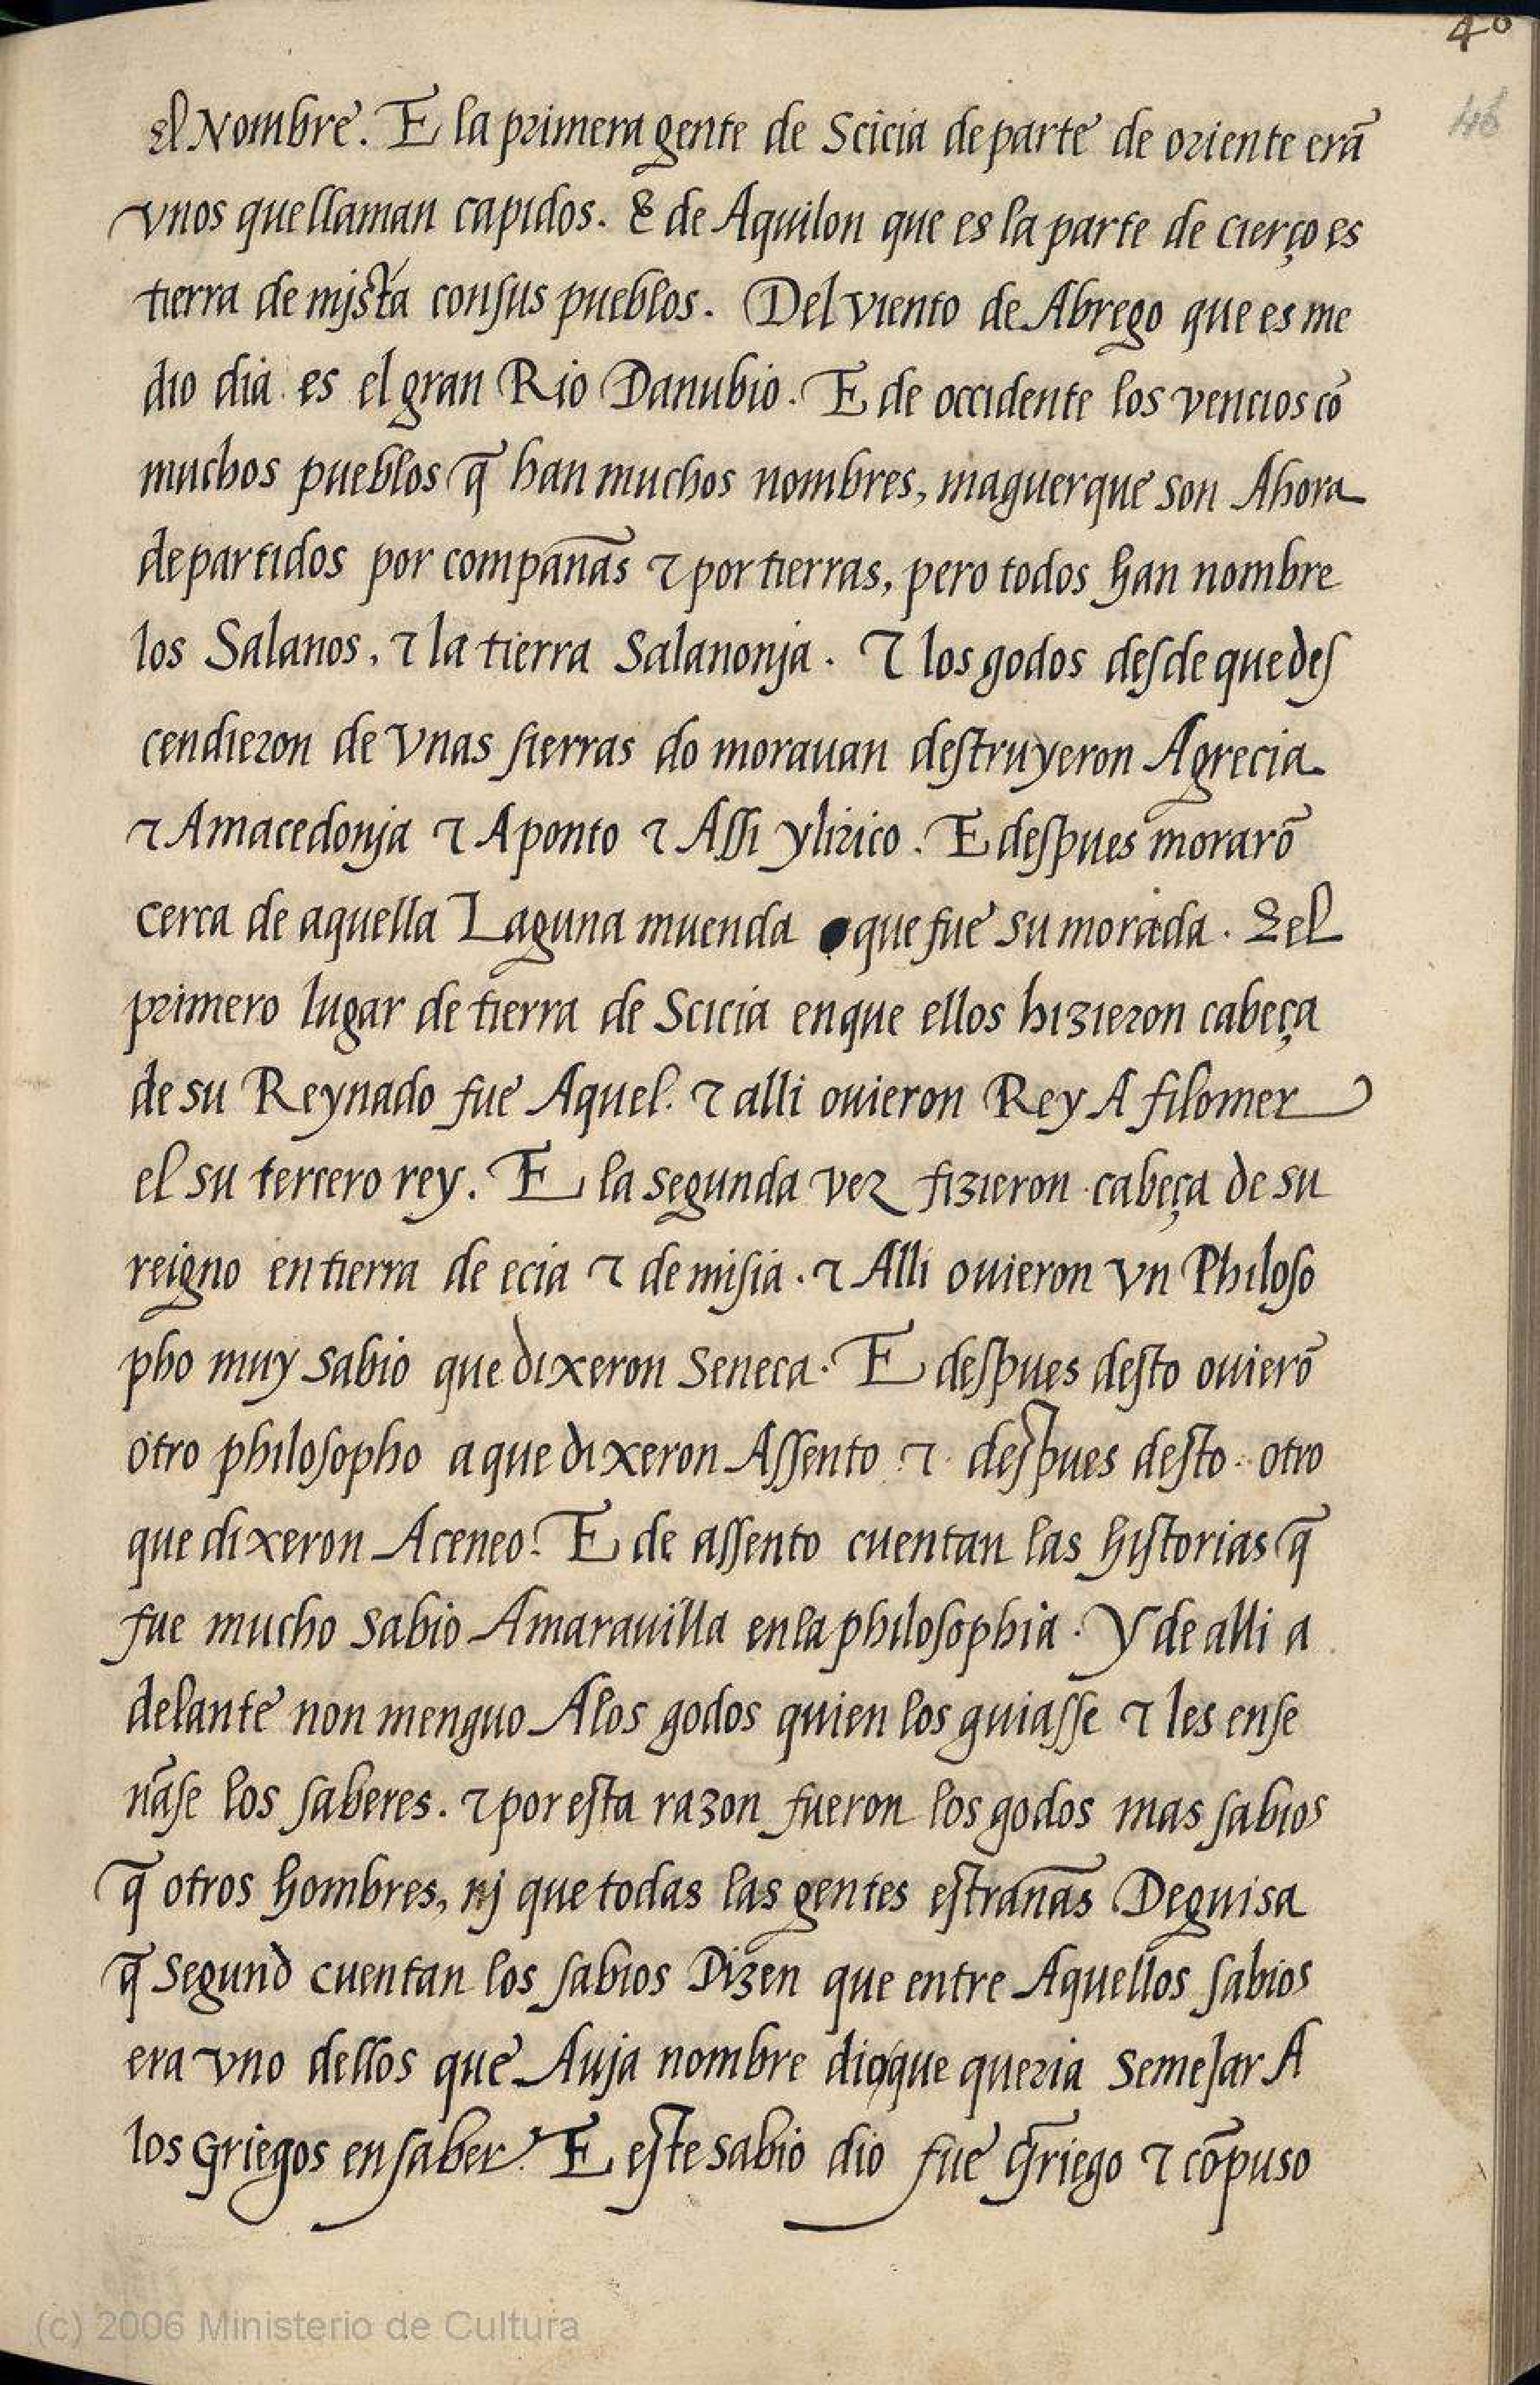 40
46
el Nombre. E la primera gente de Scicia de parte de oriente erã
vnos que llaman capidos. & de Aquilon que es la parte de cierço es
tierra de mjsta con sus pueblos. Del viento de Abrego que es me
dio dia es el gran Rio Danubio. E de occidente los vencios cõ
muchos pueblos q̃ han muchos nombres, maguer que son Ahora
departidos por compañas ⁊ por tierras, pero todos han nombre
los Salanos, ⁊ la tierra Salanonja. ⁊ los godos desde que des
cendieron de vnas sierras do morauan destruyeron Agrecia
⁊ Amacedonja ⁊ Aponto ⁊ Assi ylirico. E despues morarõ
cerca de aquella Laguna muenda que fue su morada. & el
primero lugar de tierra de Scicia en que ellos hizieron cabeça
de su Reynado fue Aquel. ⁊ alli ouieron Rey A filomer
el su tercero rey. E la segunda vez fizieron cabeça de su
reigno en tierra de ecia ⁊ de misia. ⁊ Alli ouieron vn Philoso
pho muy sabio que dixeron Seneca. E despues desto ouierõ
otro philosopho a que dixeron Assento ⁊ despues desto otro
que dixeron Aceneo. E de assento cuentan las historias q̃
fue mucho sabio Amarauilla en la philosophia. Y de alli a
delante non menguo Alos godos quien los guiasse ⁊ les ense
ñase los saberes. ⁊ por esta razon fueron los godos mas sabios
q̃ otros hombres, nj que todas las gentes estrañas De guisa
q̃ segund cuentan los sabios Dizen que entre Aquellos sabios
era vno dellos que Auja nombre dio que queria semejar A
los Griegos en saber. E este sabio dio fue Griego ⁊ cõpuso
(c) 2006 Ministerio de Cultura